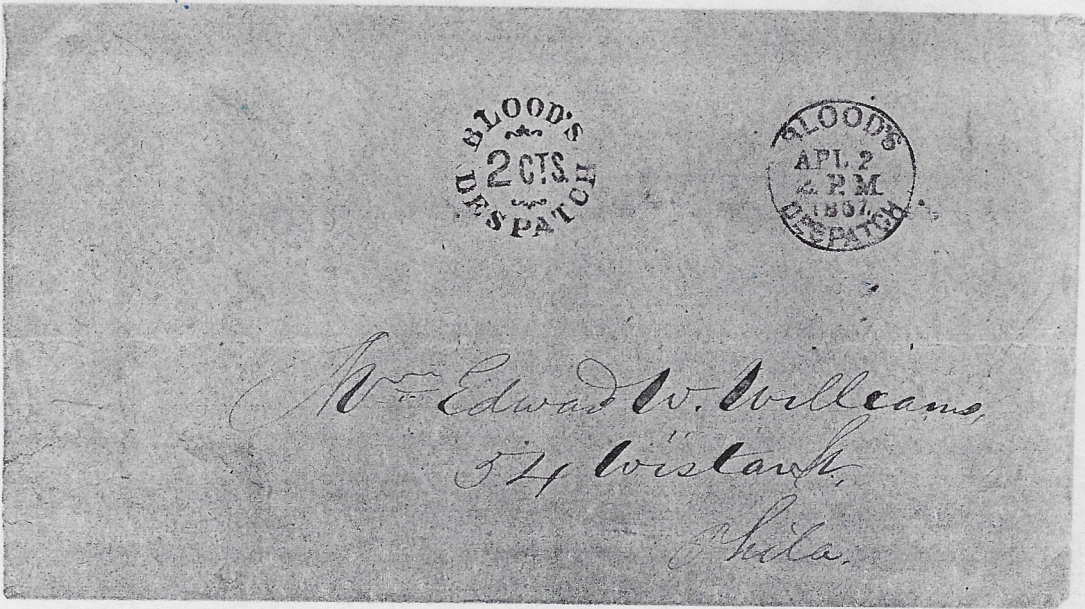 BLOOD'S
2 CTS.
DESPATCH
BLOOD'S
APL 2
2 P.M
1857
DESPATCH
Edwad W. Williams,
54 Wistar St.
Phila.